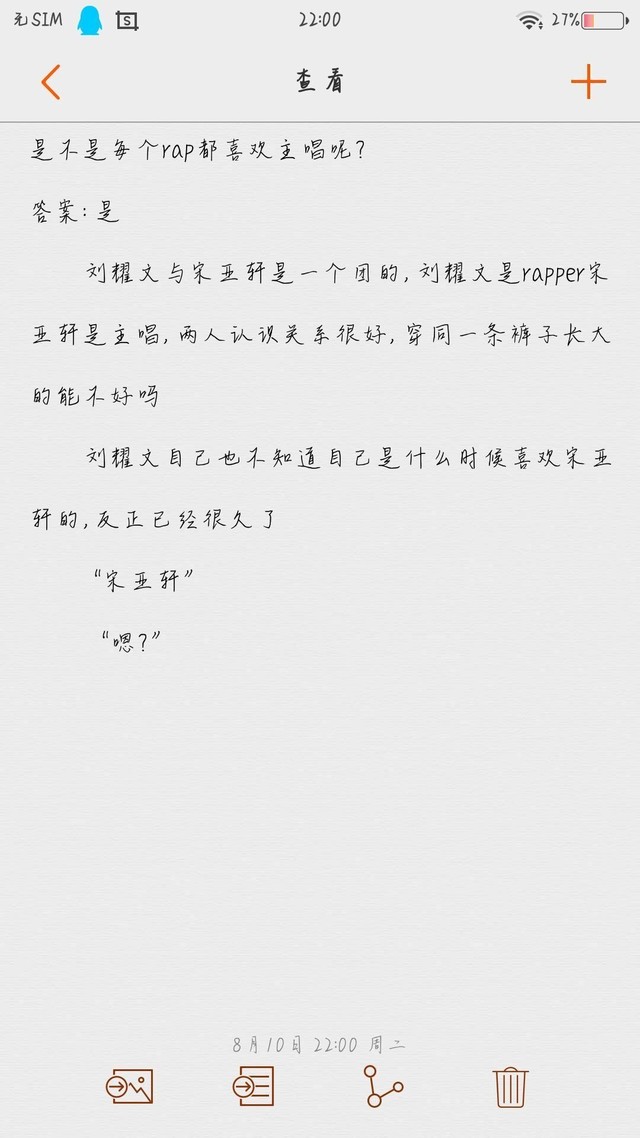 无SIM S 22:00 27%
查看
是不是每个rap都喜欢主唱呢?
答案:是
刘耀文与宋亚轩是一个团的,刘耀文是rapper宋
亚轩是主唱,两人认识关系很好,穿同一条裤子长大
的能不好吗
刘耀文自己也不知道自己是什么时候喜欢宋亚
轩的,反正已经很久了
“宋亚轩”
“嗯?”
8月10日 22:00 周二